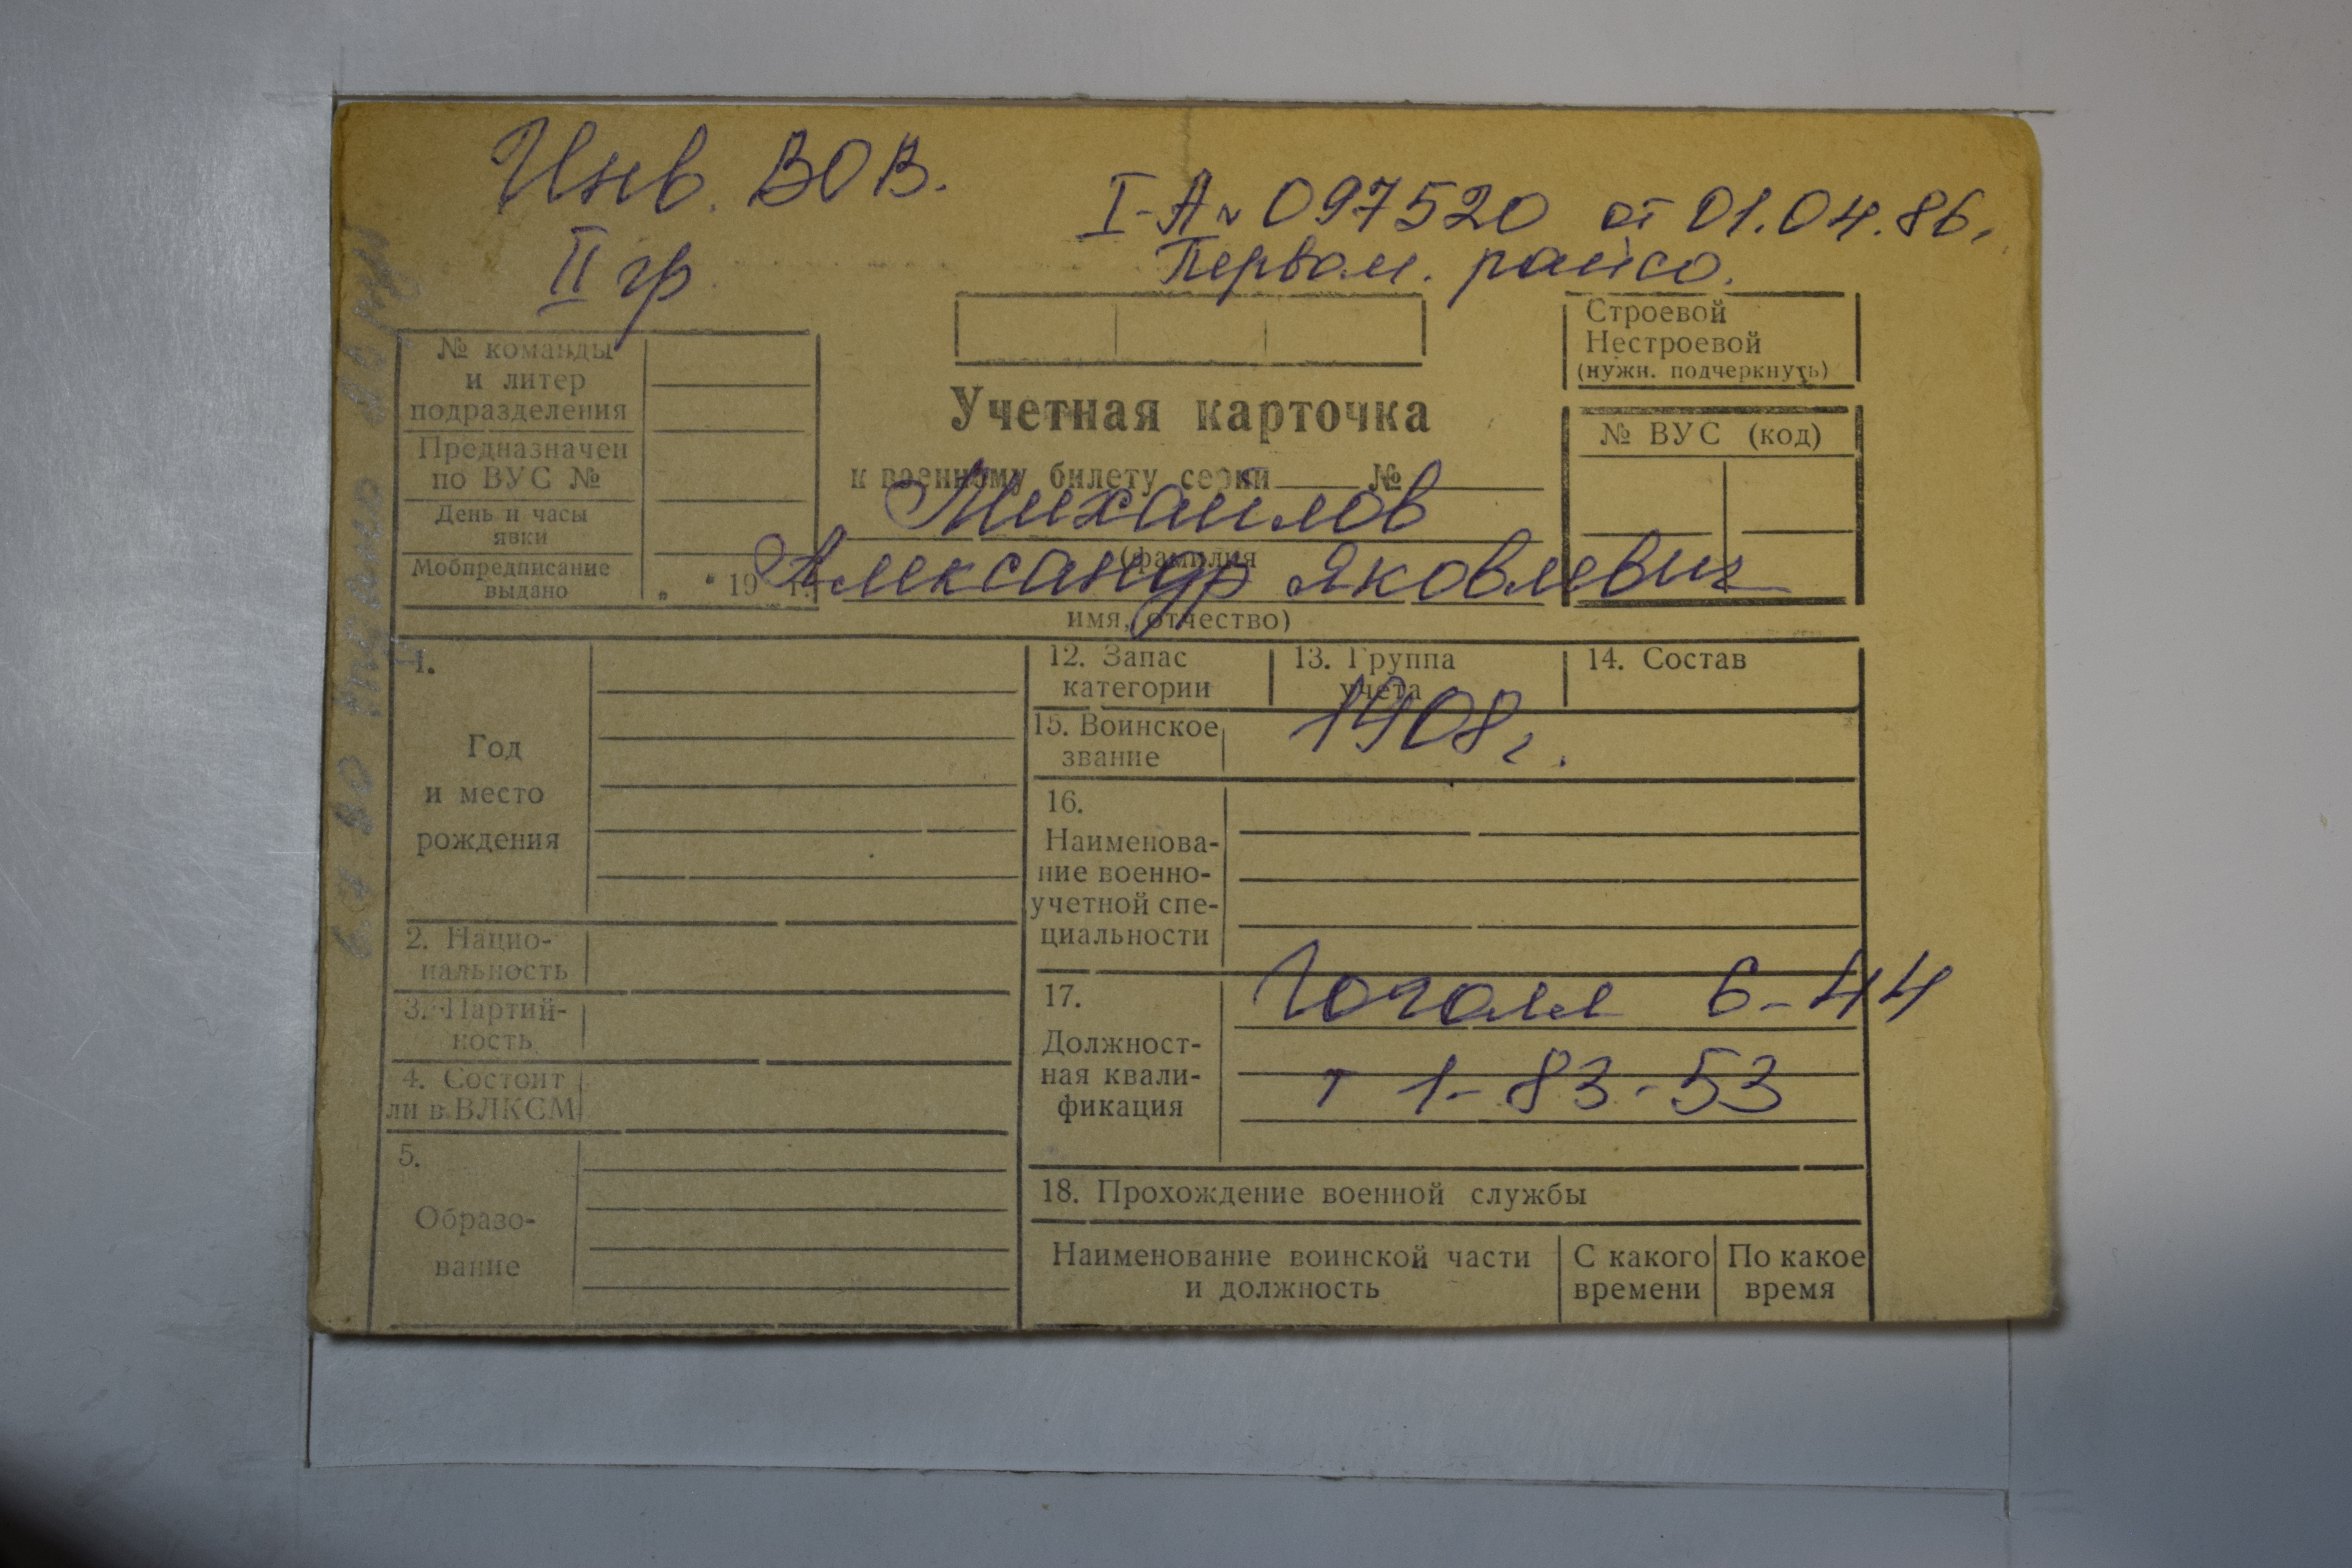 Инв. ВОВ.
I-А № 097520 от 01.04.86.
II гр.
Первом. райсо.
Строевой
Нестроевой
(нужн. подчеркнуть)
№ команды
и литер
подразделения
Предназначен
по ВУС №
День и часы
явки
Мобпредписание
выдано
„ “ 19 г.
Учетная карточка
к военному билету серии № 
Михаилов
(фамилия
Александр Яковлевич
имя, отчество)
№ ВУС (код)
1.
Год
и место
рождения
2. Нацио-
нальность
3. Партий-
ность
4. Состоит
ли в ВЛКСМ
5.
Образо-
вание
12. Запас
категории
13. Группа
учета
14. Состав
15. Воинское
звание
1908 г.
16.
Наименова-
ние военно-
учетной спе-
циальности
17.
Должност-
ная квали-
фикация
Гоголя 6-44
т 1-83-53
18. Прохождение военной службы
Наименование воинской части
и должность
С какого
времени
По какое
время